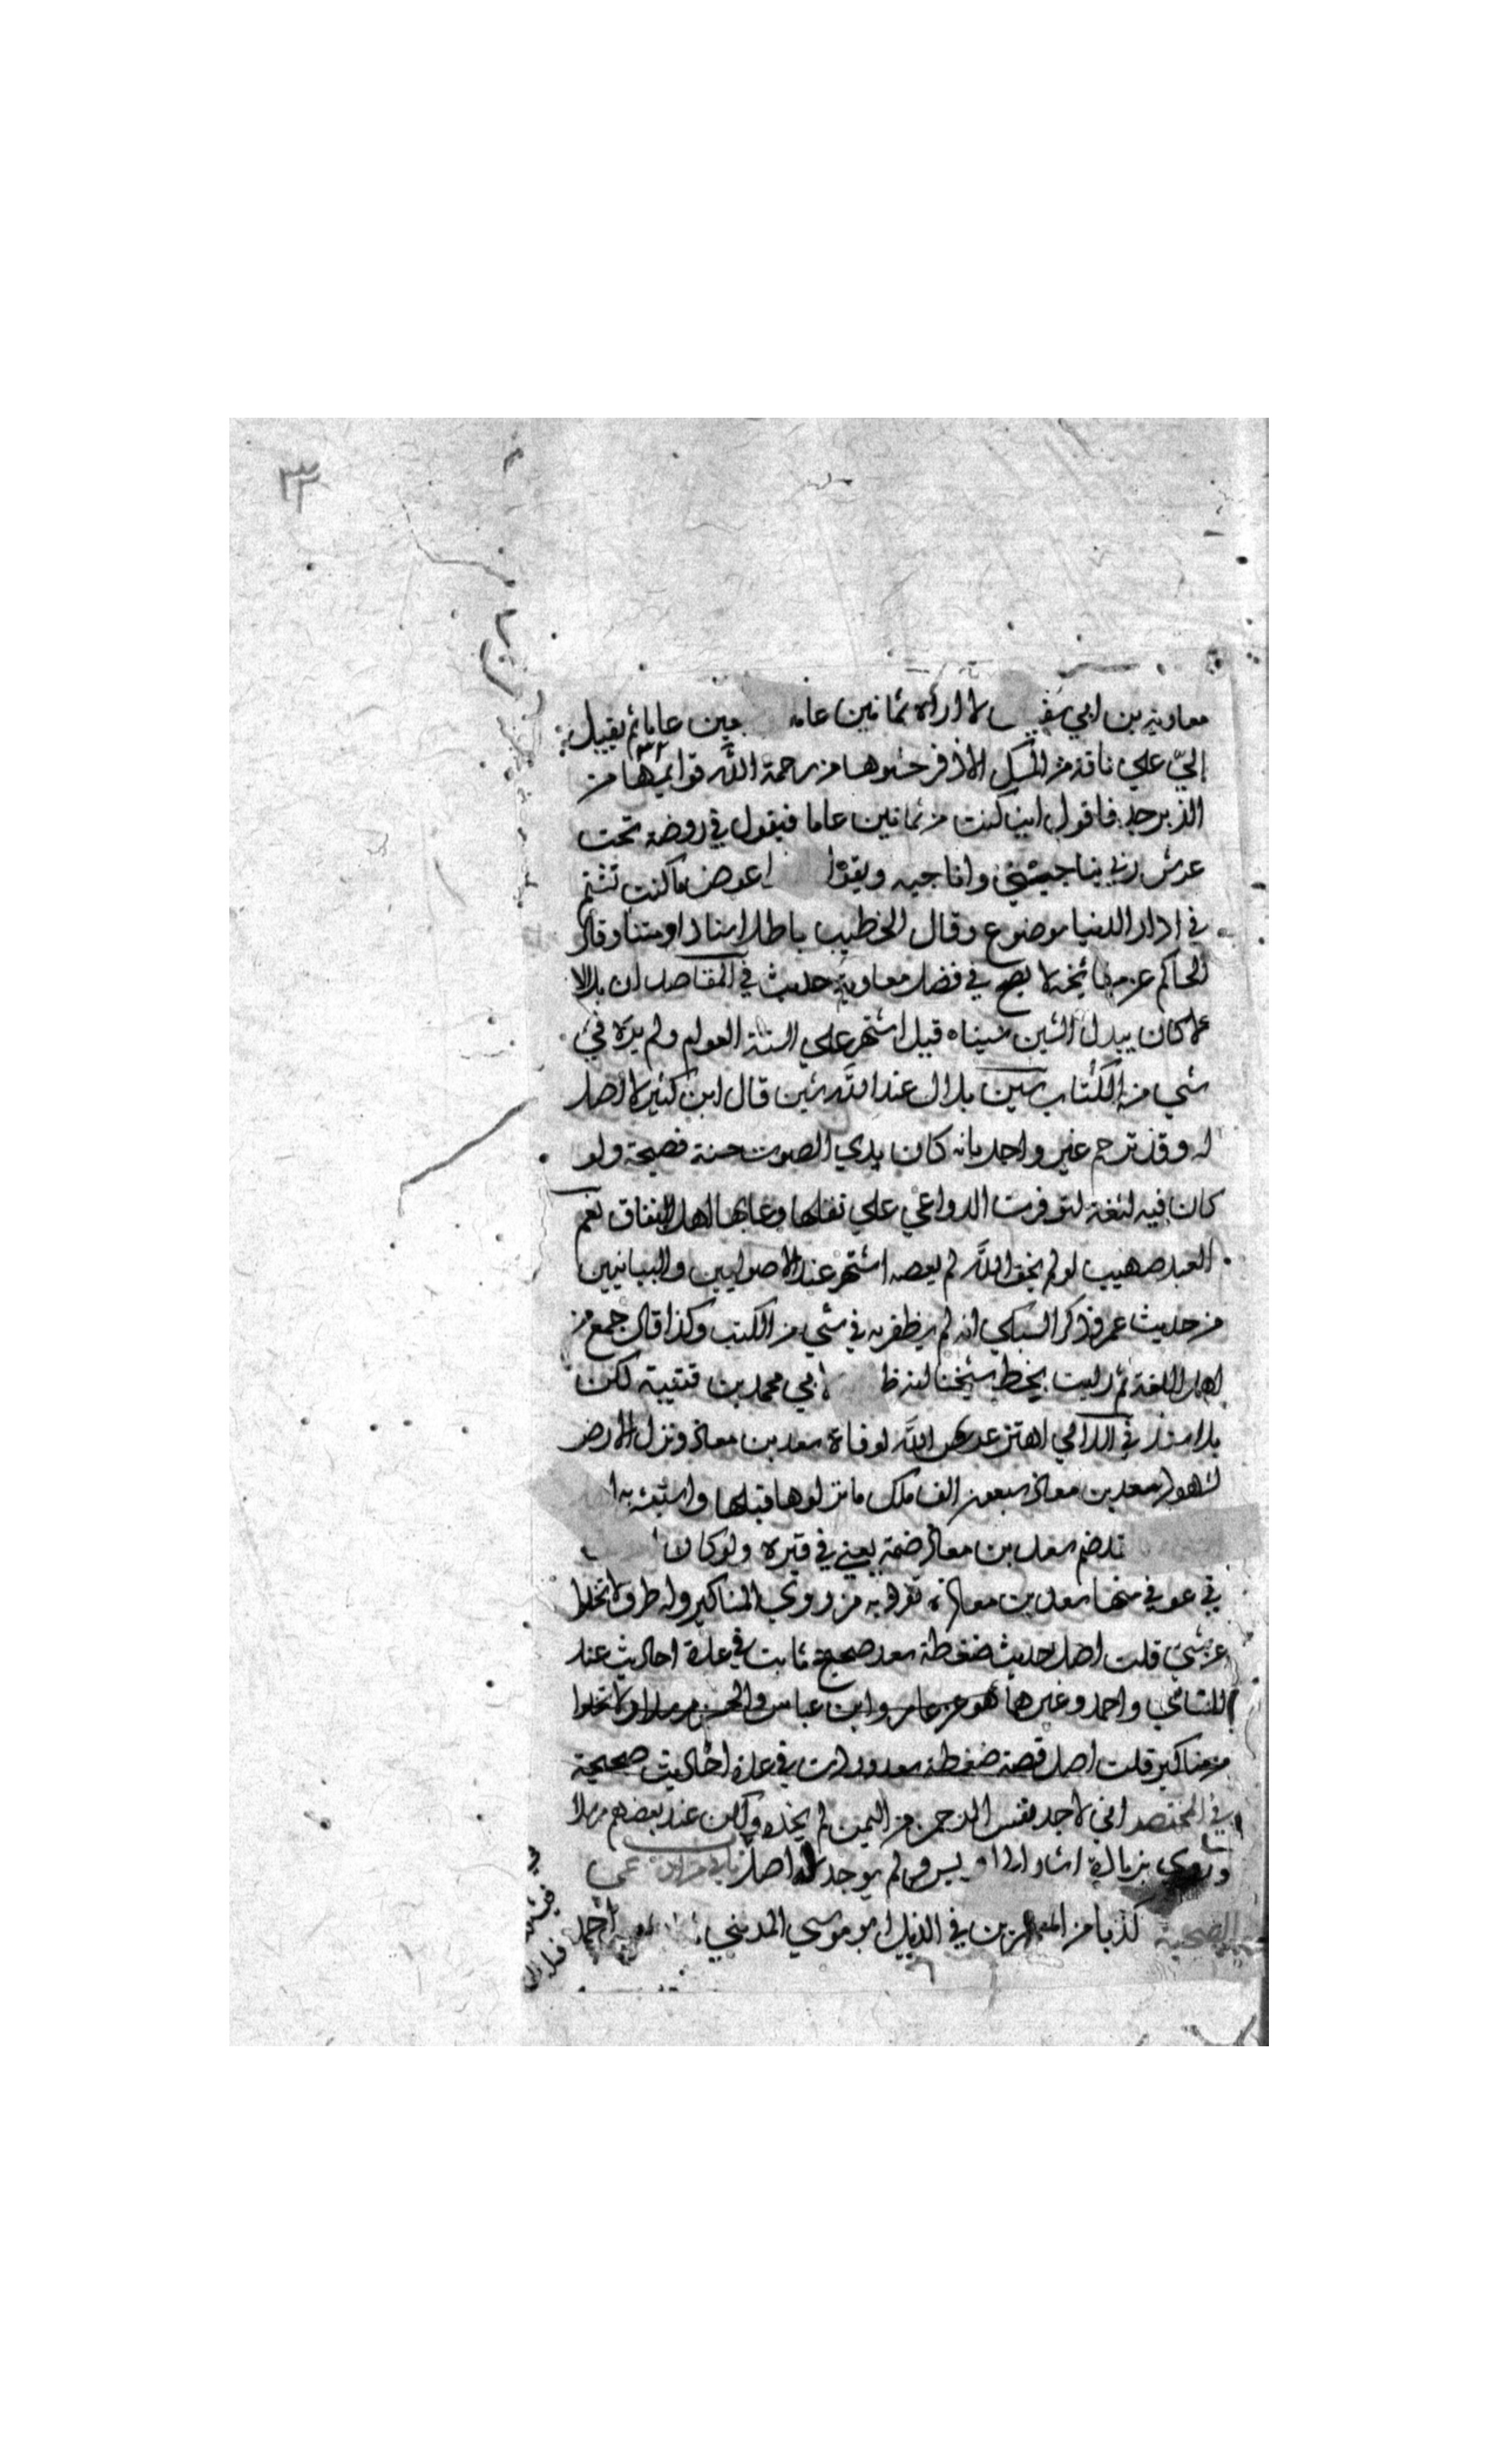 ٣٣
معاوية بن ابي سفي لا اراه ثمانين عاما عين عاما ثم يقبل
الي علي ناقة من المسك الاذفر حشوها من رحمة الله قوايمها من
الزبرجد فاقول اين كنت من ثمانين عاما فيقول في روضة تحت
عرش ربي يناجيني واناجيه ويقول عوض ما كنت تشتم
في دار الدنيا موضوع وقال الخطيب باطل اسنادا ومتنا وقال
الحاكم عن لا يصح في فضل معاوية حديث في المقاصد ان بلالا
كان يبدل الشين سينا قيل اشتهر علي السنة العوام ولم يره في
شي من الكتاب سين بلال عند الله شين قال ابن كثير لا اصل
له وقد ترجم غير واحد بانه كان ندي الصوت حسنة فصيحة ولو
كان فيه لثغة لتوفرت الدواعي علي نقلها وعابها اهل النفاق نعم
العبد صهيب لو لم يخف الله لم يعصه اشتهر عند الاصوليين والبيانيين
من حديث عمر وذكر السبكي انه لم يظفر به في شي من الكتب وكذا قال جمع من
اهل اللغة ثم رايت بخط شيخنا ابي محمد بن قتيبة لكن
بلا اسناد في اللالي اهتز عرش الله لوفاة سعد بن معاذ ونزل الارض
لشهود سعد بن معاذ سبعون الف ملك ما نزلوها قبلها واستبشر به
لقد ضم سعد بن معاذ ضمة يعني في قبره ولو كان
في عوفي منها سعد بن معاذ تفرد به من روي المناكير وله طرق لا تخلوا
عن شي قلت اصل حديث ضغطة سعد صحيح ثابت في عدة احاديث عند
النسائي واحمد وغيرهما هو عن جابر وابن عباس والحسن مرسلا ولا تخلوا
من مناكير قلت اصل قصة ضغطة سعد وردت في عدة احاديث صحيحة
في المختصر اني لاجد نفس الرحمن من اليمن لم نجده ولكن عند بعضهم مرسلا
وروي لم يوجد له اصل
كذبا من المعمرين في الذيل ابو موسي المديني احمد